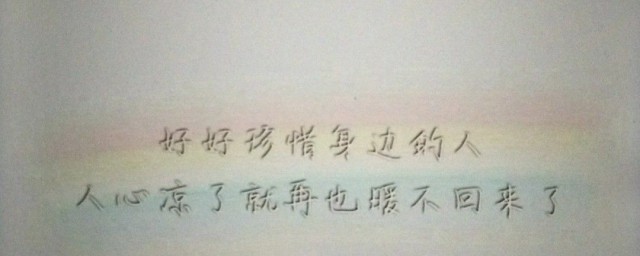 好好珍惜身边的人
人心凉了就再也暖不回来了